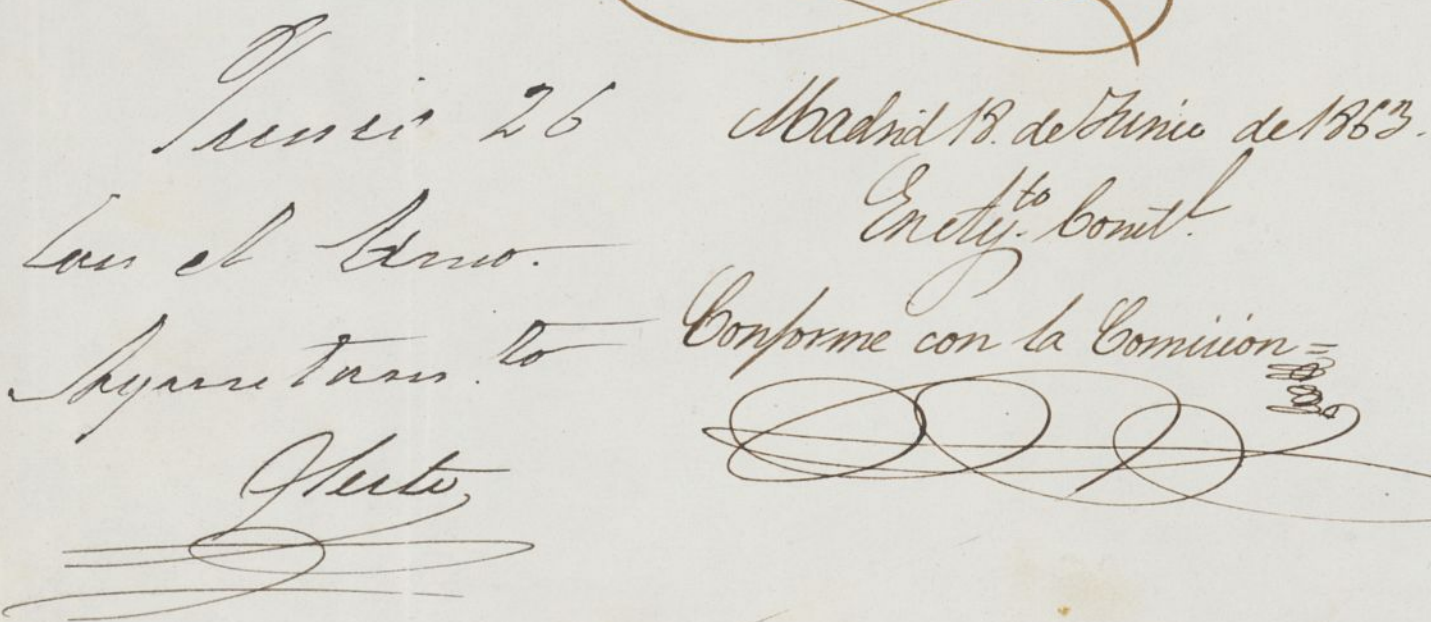 Junio 26
Con el Excmo.
Ayuntam.to
Madrid 18. de Junio de 1863.
En Ay.to Const.l
Conforme con la Comision=